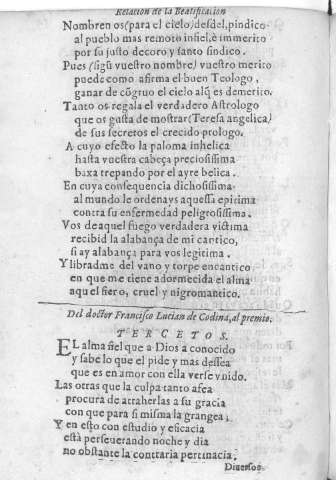 Relacion de la Beatificacion
Nombren os (para el cielo) desdel, pindico
al pueblo mas remoto infiel, è immerito
por su justo decoro y santo sindico.
Pues (sigũ vuestro nombre) vuestro merito
puede como afirma el buen Teologo,
ganar de cõgruo el cielo alq̃ es demerito.
Tanto os regala el verdadero Astrologo
que os gusta de mostrar (Teresa angelica)
de sus secretos el crecido prologo.
A cuyo efecto la paloma inhelica
hasta vuestra cabeça preciosissima
baxa trepando por el ayre belica.
En cuya consequencia dichosissima
al mundo le ordenays aquessa epitima
contra su enfermedad peligrosissima.
Vos de aquel fuego verdadera victima
recibid la alabança de mi cantico,
si ay alabança para vos legitima.
Y libradme del vano y torpe encantico
en que me tiene adormecida el alma
aquel fiero, cruel y nigromantico.
Del doctor Francisco Lucian de Codina, al premio.
TERCETOS.
EL alma fiel que a Dios a conocido
y sabe lo que el pide y mas dessea
que es en amor con ella verse vnido.
Las otras que la culpa tanto afea
procura de atraherlas a su gracia
con que para si misma la grangea;
Y en esto con estudio y eficacia
està perseuerando noche y dia
no obstante la contraria pertinacia.
Diuersos.